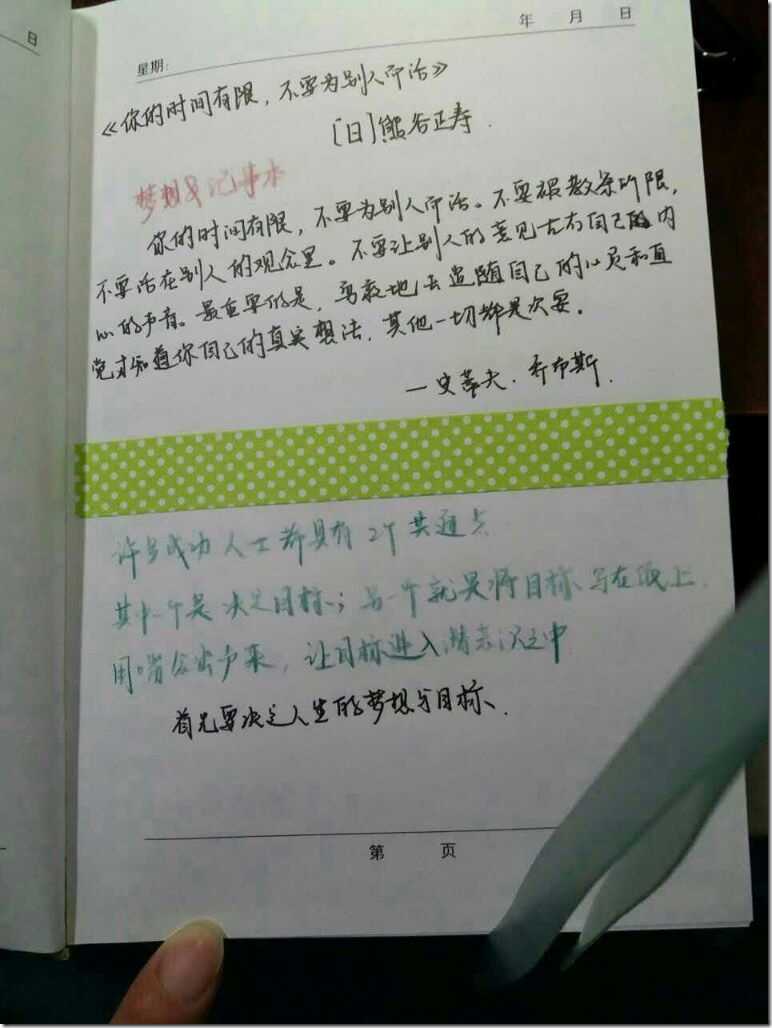 日
年 月 日
星期:
《你的时间有限，不要为别人而活》
[日]熊谷正寿.
梦想与记事本
你的时间有限，不要为别人而活。不要被教条所限，
不要活在别人的观念里。不要让别人的意见左右自己的内
心的声音。最重要的是，勇敢地去追随自己的心灵和直
觉才知道你自己的真实想法，其他一切都是次要。
—史蒂夫.乔布斯.
许多成功人士都具有2个共通点
其中一个是决定目标；另一个就是将目标写在纸上.
用嘴念出声来，让目标进入潜意识之中
首先要决定人生的梦想与目标.
第 页